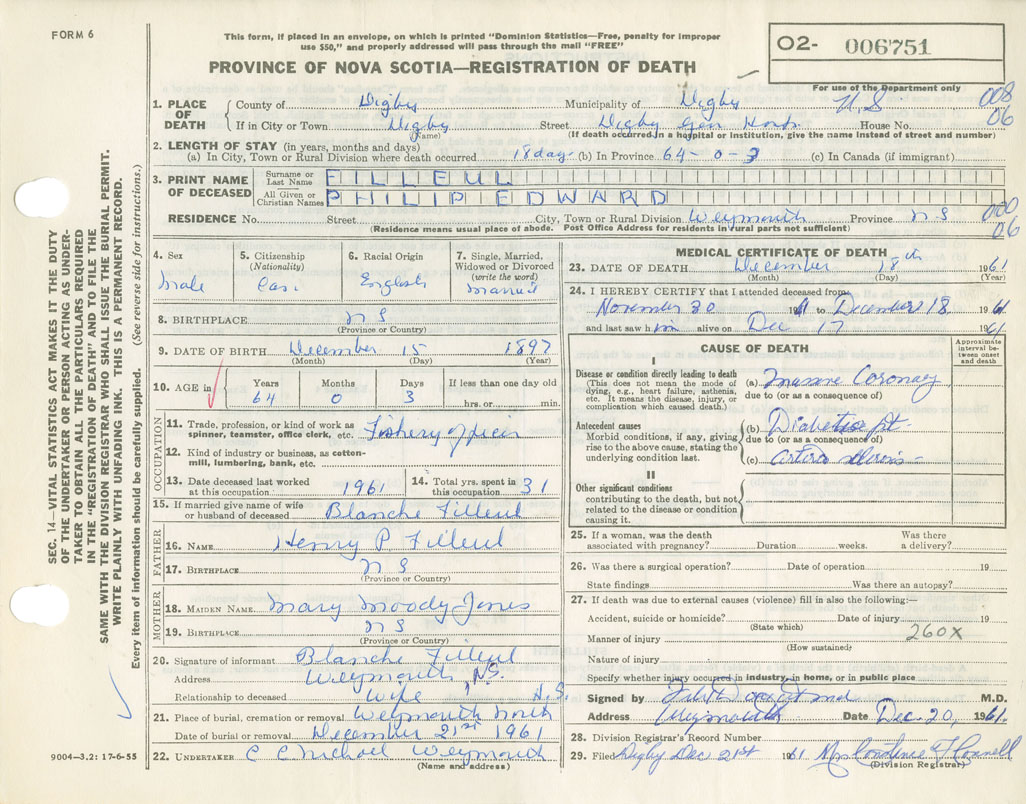 FORM 6
This form, if placed in an envelope, on which is printed "Dominion Statistics—Free, penalty for improper
use $50," and properly addressed will pass through the mail "FREE"
02- 006751
PROVINCE OF NOVA SCOTIA—REGISTRATION OF DEATH
For use of the Department only
1. PLACE OF DEATH County of Digby Municipality of Digby N.S 008
If in City or Town Digby Street Digby Gen House No. 06
(Name) (If death occurred in a hospital or institution, give the name instead of street and number)
2. LENGTH OF STAY (in years, months and days)
(a) In City, Town or Rural Division where death occurred 18 days (b) In Province 64-0-3 (c) In Canada (if immigrant)
3. PRINT NAME OF DECEASED Surname or Last Name FILLEUL
All Given or Christian Names PHILIP EDWARD
RESIDENCE No. Street City, Town or Rural Division Weymouth Province N S 000
(Residence means usual place of abode. Post Office Address for residents in rural parts not sufficient) 06
4. Sex Male
5. Citizenship (Nationality) Can
6. Racial Origin English
7. Single, Married, Widowed or Divorced (write the word) Married
8. BIRTHPLACE N S
(Province or Country)
9. DATE OF BIRTH December 15 1897
(Month) (Day) (Year)
10. AGE in Years Months Days If less than one day old
64 0 3 hrs. or min.
OCCUPATION
11. Trade, profession, or kind of work as
spinner, teamster, office clerk, etc. Fishery officer
12. Kind of industry or business, as cotton-
mill, lumbering, bank, etc.
13. Date deceased last worked at this occupation 1961 14. Total yrs. spent in this occupation 31
15. If married give name of wife
or husband of deceased Blanche Filleul
FATHER
16. NAME Henry P Filleul
17. BIRTHPLACE N S
(Province or Country)
MOTHER
18. MAIDEN NAME Mary Moody Jones
19. BIRTHPLACE N S
(Province or Country)
20. Signature of informant Blanche Filleul
Address Weymouth, N.S.
Relationship to deceased Wife N.S.
21. Place of burial, cremation or removal Weymouth North
Date of burial or removal December 21st 1961
22. UNDERTAKER C C Nichael Weymouth
(Name and address)
MEDICAL CERTIFICATE OF DEATH
23. DATE OF DEATH December 18th 1961
(Month) (Day) (Year)
24. I HEREBY CERTIFY that I attended deceased from
November 30 1961 to December 18 1961
and last saw him alive on Dec 17 1961
CAUSE OF DEATH
Approximate interval between onset and death
I
Disease or condition directly leading to death
(This does not mean the mode of
dying, e.g., heart failure, asthenia,
etc. It means the disease, injury, or
complication which caused death.)
(a) Massive Coronary
due to (or as a consequence of)
Antecedent causes
Morbid conditions, if any, giving
rise to the above cause, stating the
underlying condition last.
(b) Diabetes
due to (or as a consequence of)
(c)
II
Other significant conditions
contributing to the death, but not
related to the disease or condition
causing it.
25. If a woman, was the death
associated with pregnancy? Duration weeks. Was there a delivery?
26. Was there a surgical operation? Date of operation 19
State findings Was there an autopsy?
27. If death was due to external causes (violence) fill in also the following:—
Accident, suicide or homicide? Date of injury 19
(State which) 260X
Manner of injury
(How sustained)
Nature of injury
Specify whether injury occurred in industry, in home, or in public place
Signed by M.D.
Address Weymouth Date Dec. 20, 1961.
28. Division Registrar's Record Number
29. Filed Digby Dec 21st 1961 Mrs Constance F Connell
(Division Registrar)
SEC. 14—VITAL STATISTICS ACT MAKES IT THE DUTY
OF THE UNDERTAKER OR PERSON ACTING AS UNDER-
TAKER TO OBTAIN ALL THE PARTICULARS REQUIRED
IN THE "REGISTRATION OF DEATH" AND TO FILE THE
SAME WITH THE DIVISION REGISTRAR WHO SHALL ISSUE THE BURIAL PERMIT.
WRITE PLAINLY WITH UNFADING INK. THIS IS A PERMANENT RECORD.
Every item of information should be carefully supplied. (See reverse side for instructions.)
9004—3.2: 17-6-55